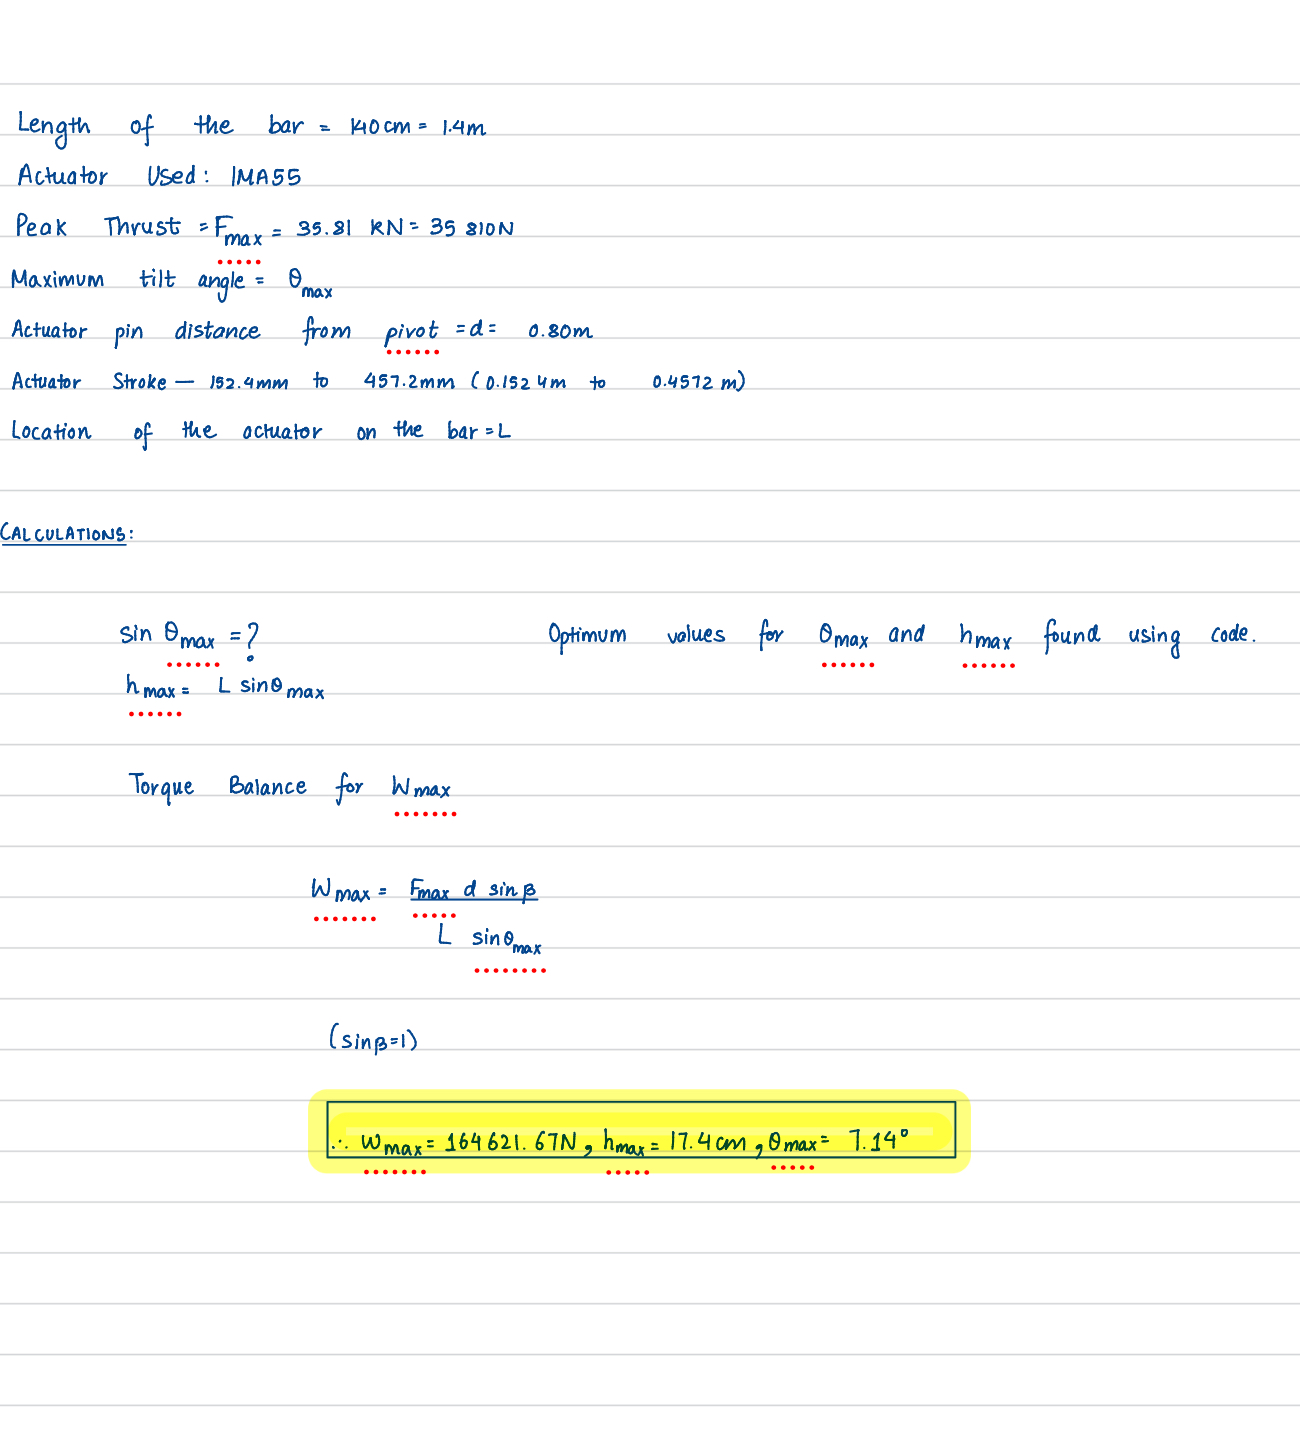 Length of the bar = 140cm = 1.4m
Actuator Used: IMA55
Peak Thrust = Fmax = 35.81 kN = 35 810N
Maximum tilt angle = θmax
Actuator pin distance from pivot = d = 0.80m
Actuator Stroke — 152.4mm to 457.2mm (0.1524m to 0.4572 m)
Location of the actuator on the bar = L
CALCULATIONS:
sin θmax = ? Optimum values for θmax and hmax found using code.
hmax = L sinθmax
Torque Balance for Wmax
Wmax = Fmax d sinβ
L sinθmax
(sinβ=1)
∴ Wmax = 164621.67N, hmax = 17.4cm, θmax = 7.14°